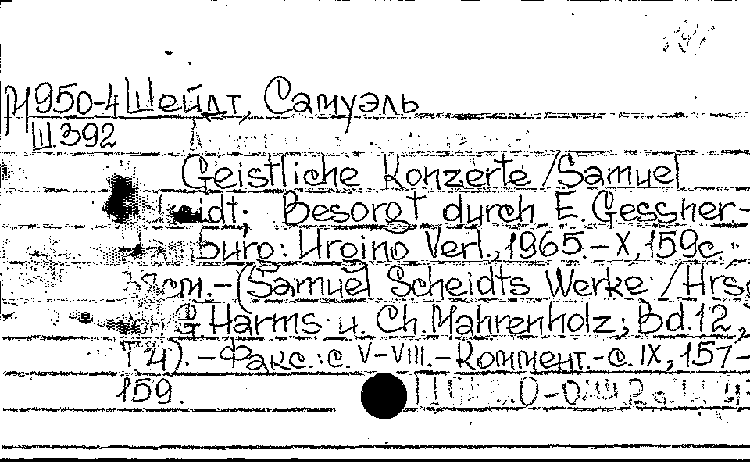 М950-4 Шейдт, Самуэль
Ш392
Geistliche Konzerte / Samuel
Besorgt durch E. Gessner.-
burg: Ugrino Verl., 1965.-X, 159с.
см.-(Samuel Scheidts Werke / Hrsg
G Harms u. Ch. Mahrenholz; Bd.12,
T4).-Факс.: с. V-VIII.-Коммент.-с. IX, 157-
159.